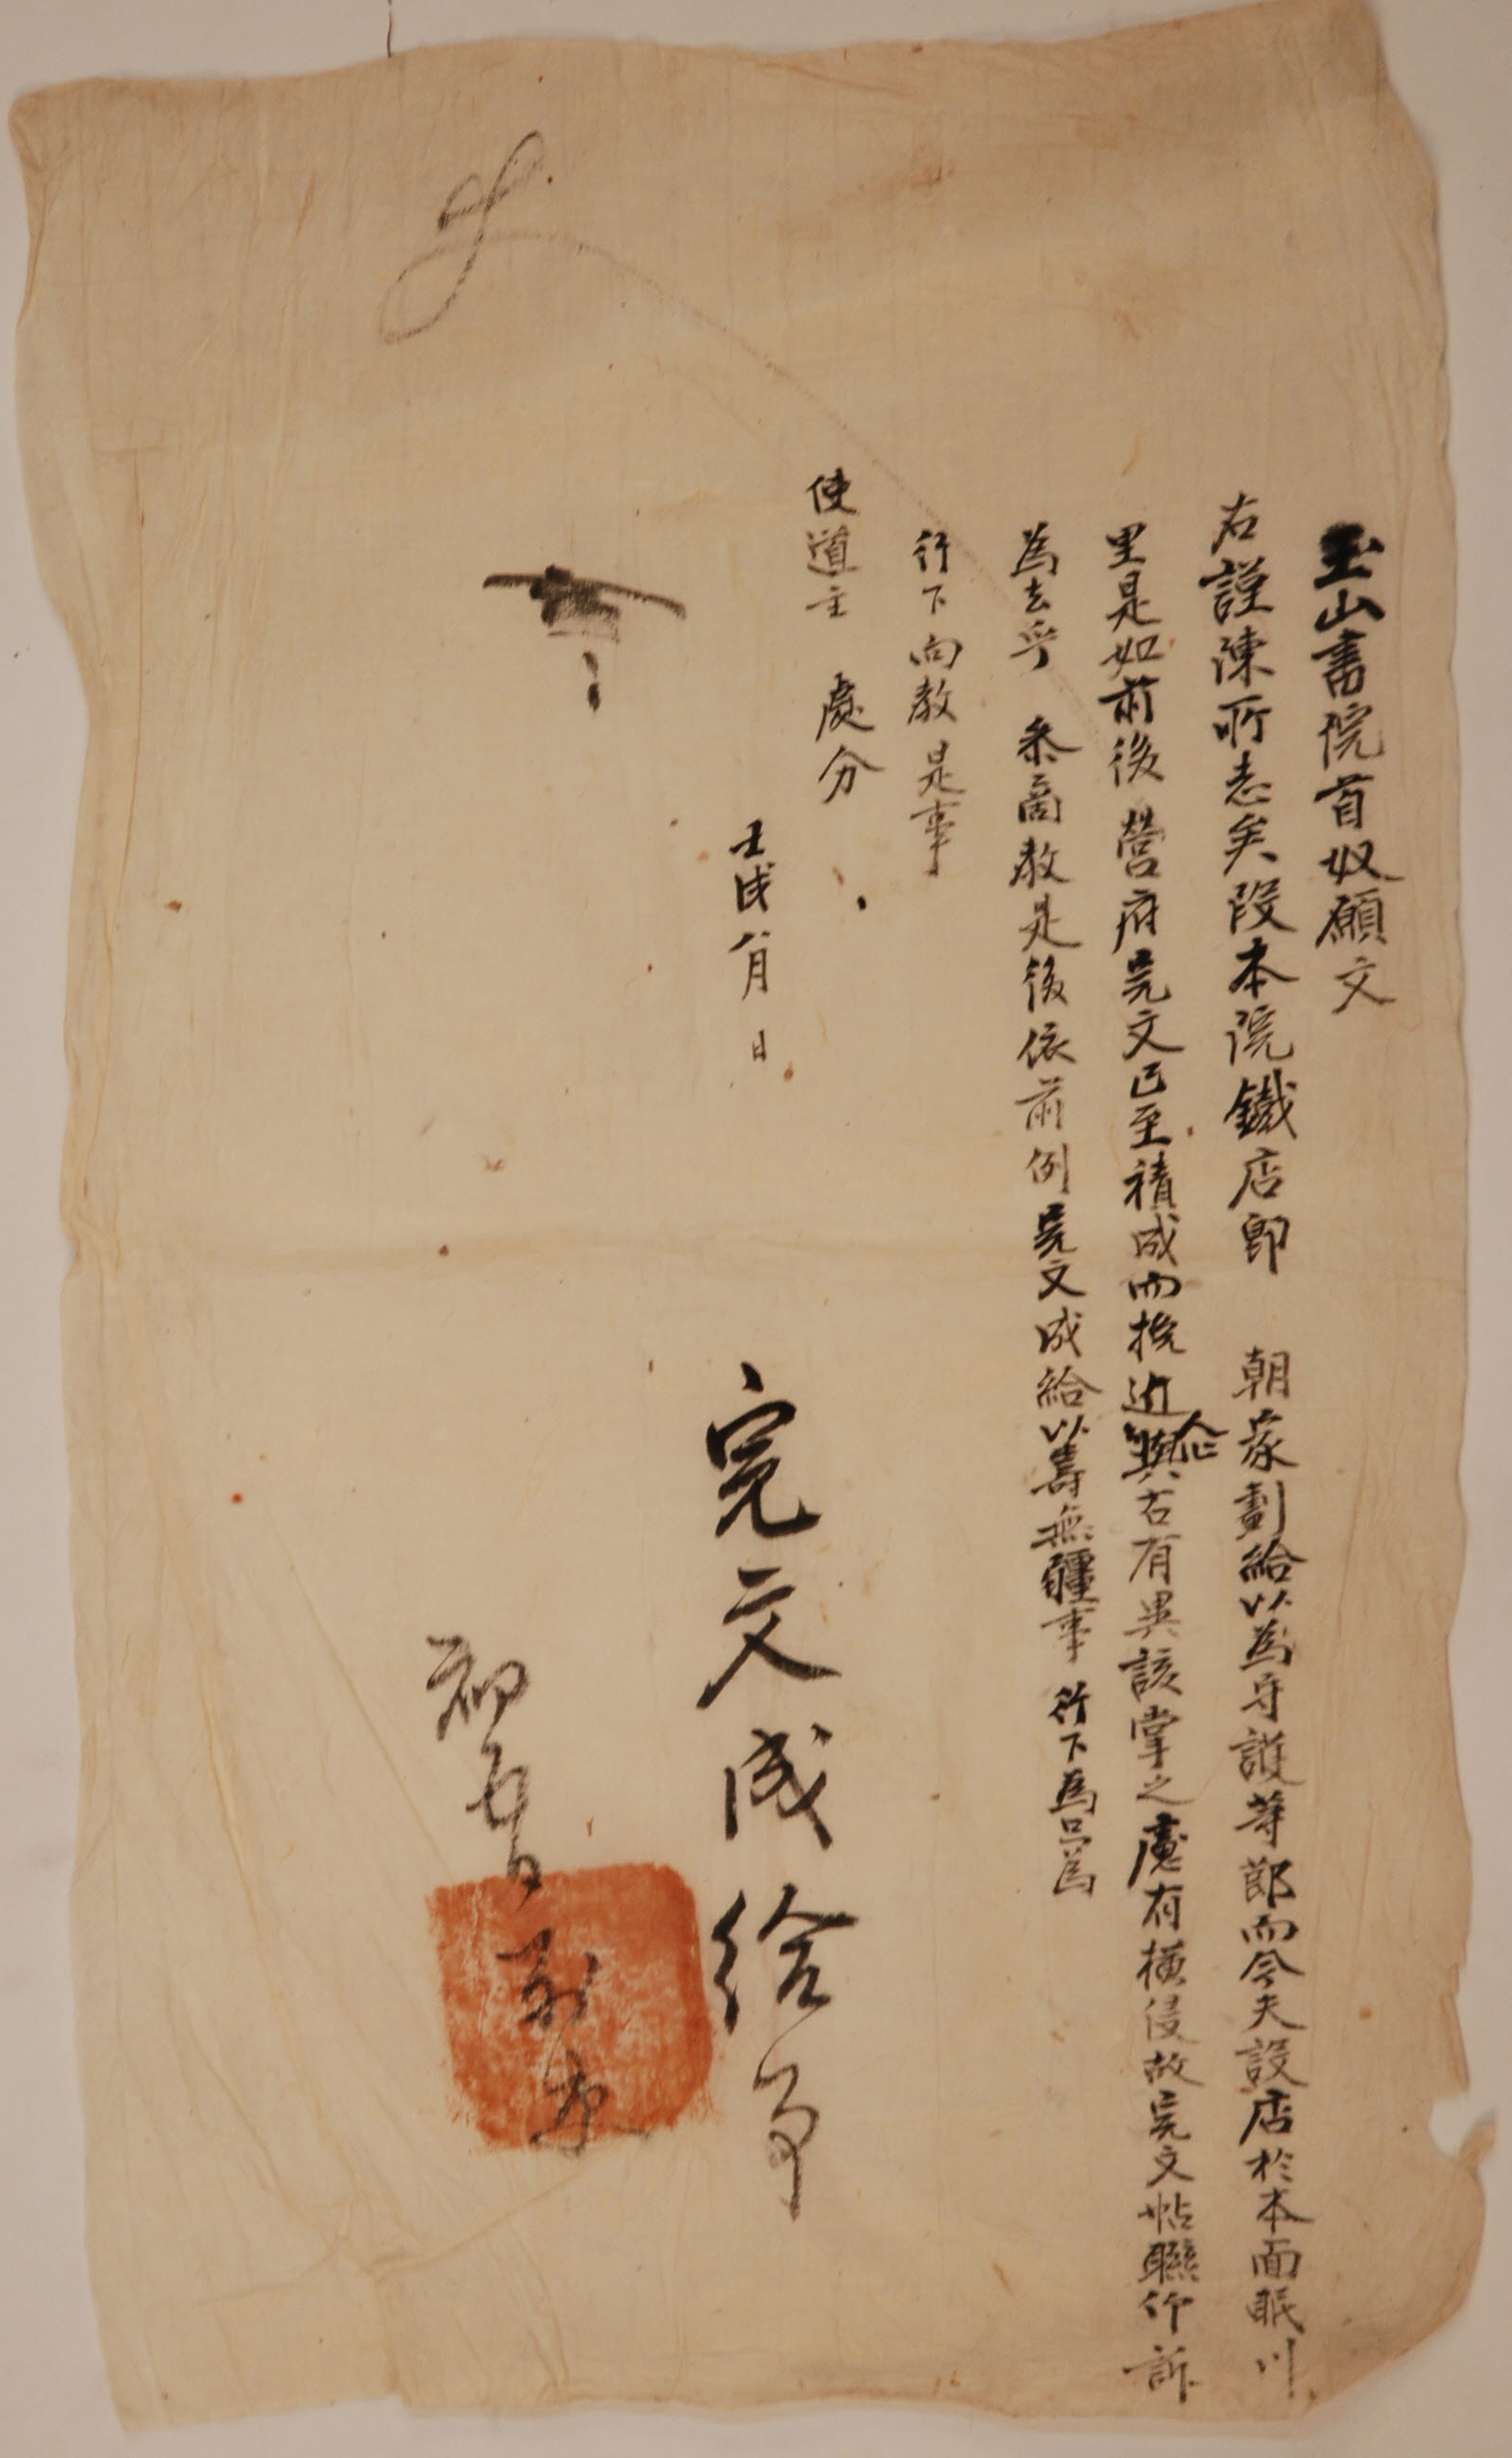 玉山書院首奴願文
右謹陳所志矣段本院鐵店卽 朝家劃給以爲守護等節而今夫設店於本面眠川
里是如前後 營府完文已至積成而挽近人心與古有異該掌之處有橫侵故完文帖聯仰訴
爲去乎 叅商敎是後依前例完文成給以壽無疆事 行下爲只爲
行下向敎是事
使道主 處分
壬戌八月 日
完文成給事
初五日